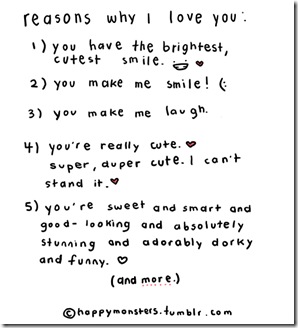 reasons why i love you:
1) you have the brightest,
cutest smile.
2) you make me smile! (:
3) you make me laugh.
4) you're really cute.
super, duper cute. I can't
stand it.
5) you're sweet and smart and
good-looking and absolutely
stunning and adorably dorky
and funny.
(and more.)
©happymonsters.tumblr.com